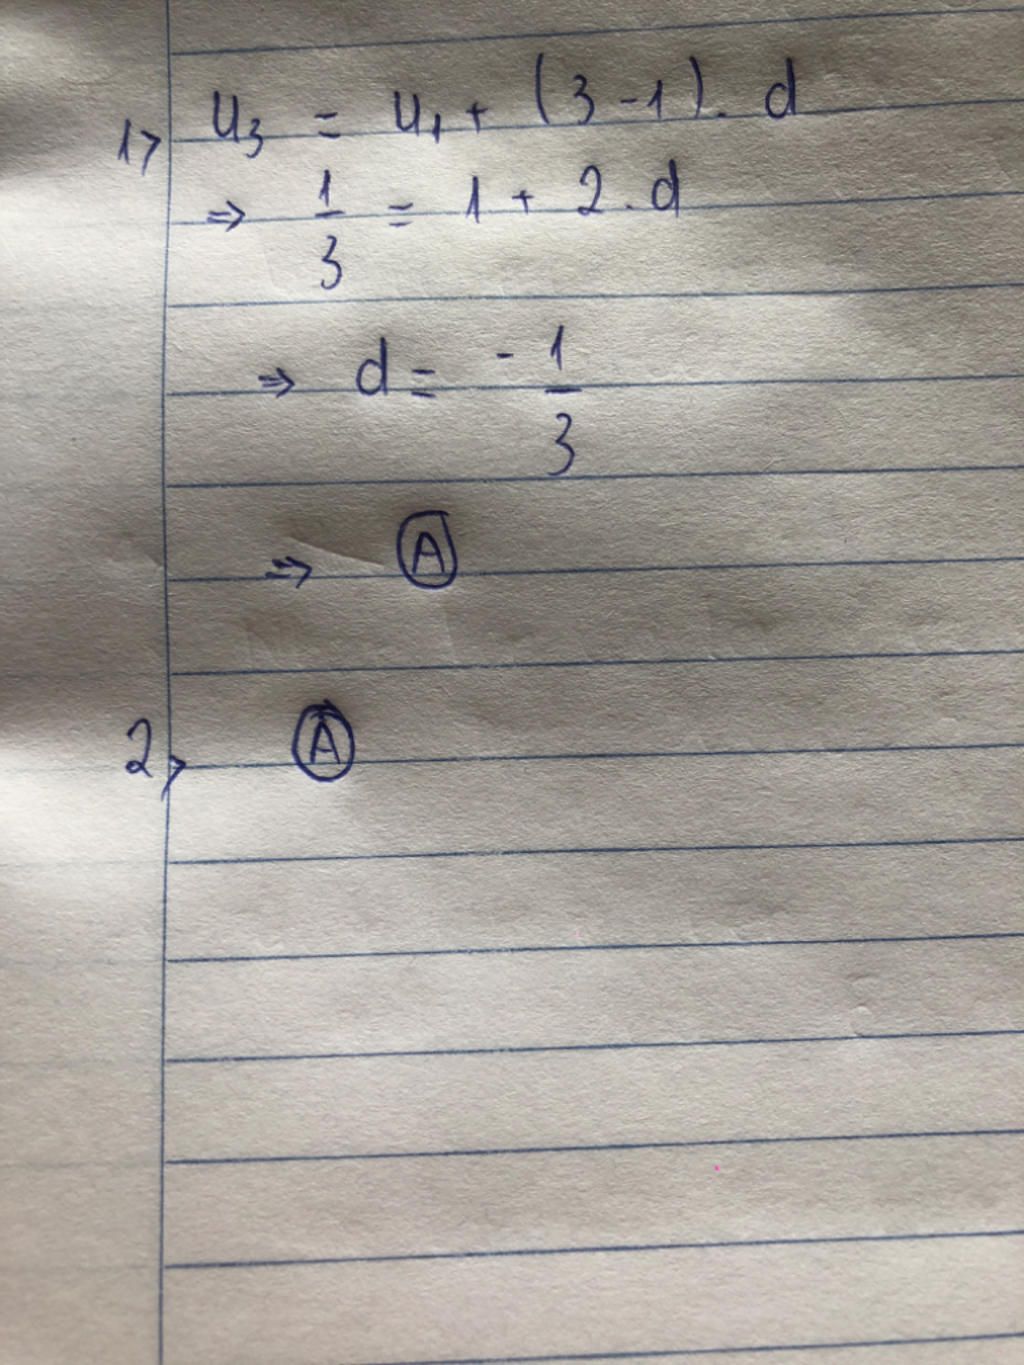 1> u₃ = u₁ + (3-1). d
⇒ 1/3 = 1 + 2.d
⇒ d = - 1/3
⇒ Ⓐ
2> Ⓐ